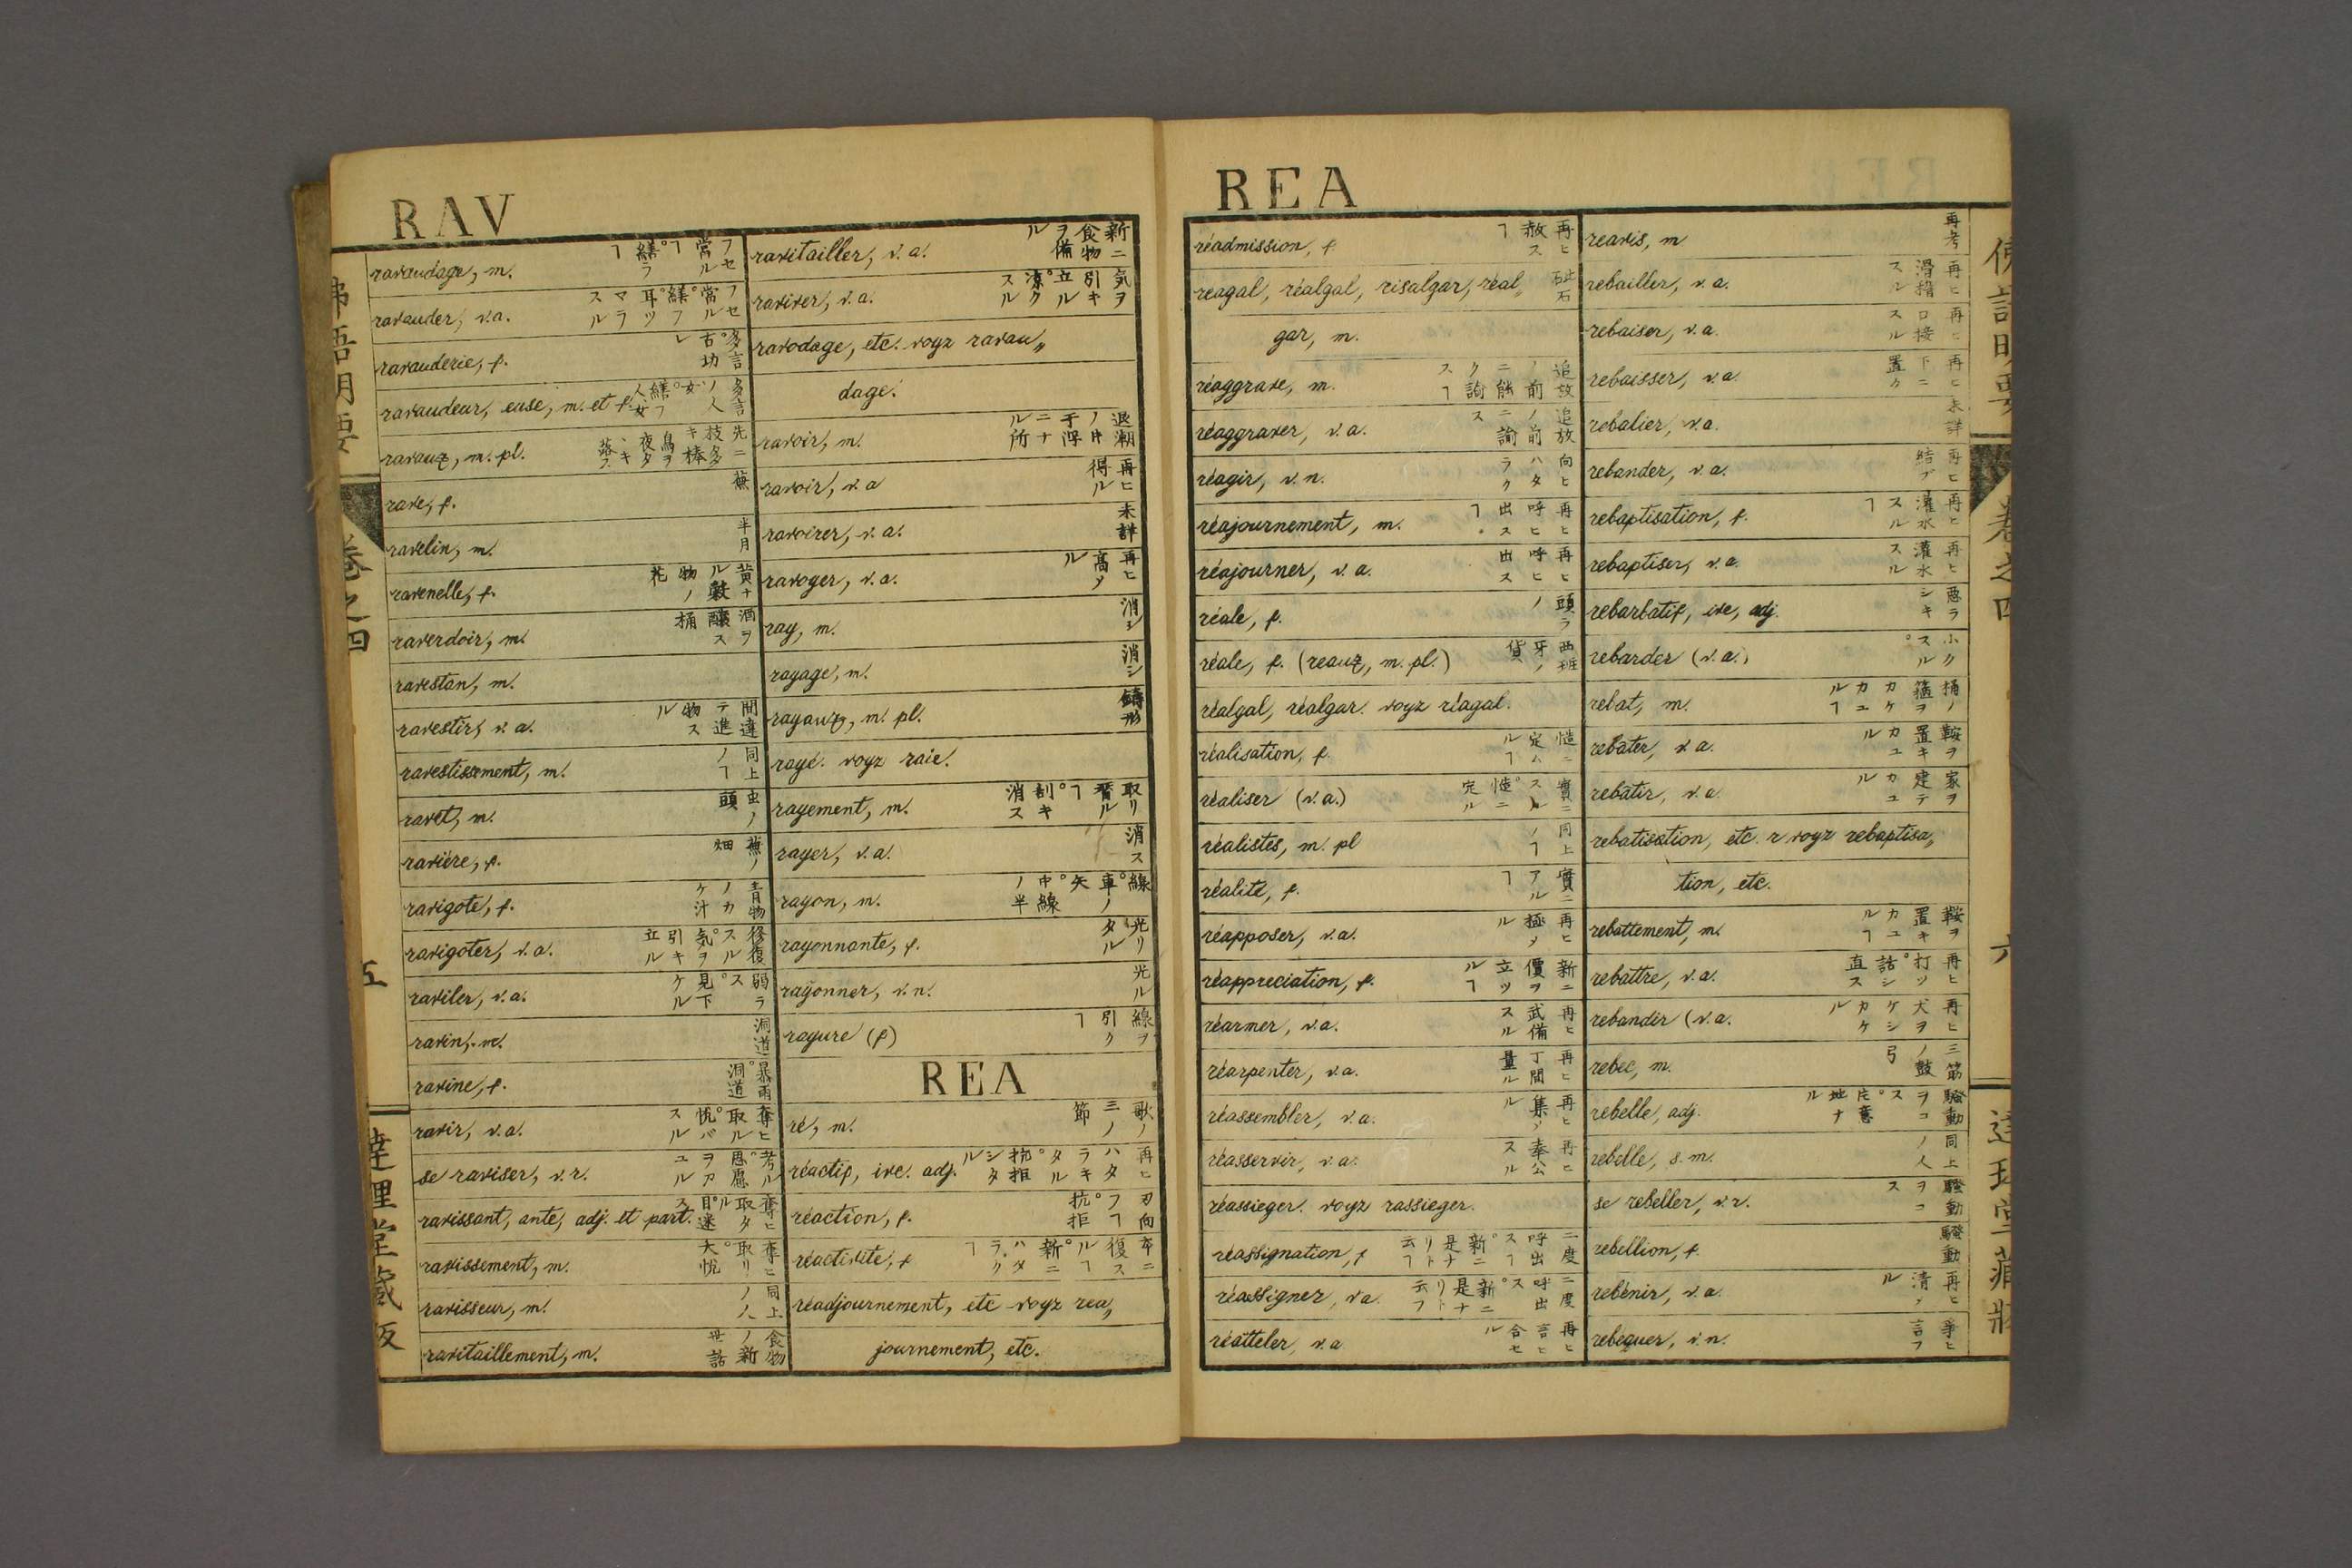 RAV
ravaudage, m.
ravauder, v.a.
ravauderie, f. 多言 古功レ
ravaudeur, euse, m. et f.
ravaux, m. pl.
rave, f. 蕪
ravelin, m. 半月
ravenelle, f.
raverdoir, m. 酒ヲ醸ス桶
ravestan, m.
ravestir, v.a. 間違テ進ス物ル
ravestissement, m. 同上ノヿ
ravet, m. 虫ノ頭
ravière, f. 蕪ノ畑
ravigote, f. 青物ノカケ汁
ravigoter, v.a. 修復スル。気ヲ引キ立ル
raviler, v.a. 弱ラス。見下ケル
ravin, m. 洞道
ravine, f. 暴雨。洞道
ravir, v.a. 奪ヒ取ル。悦バスル
se raviser, v.r.
ravissant, ante, adj. et part.
ravissement, m. 奪ヒ取リ。大悦
ravisseur, m. 同上ノ人
ravitaillement, m. 食物ノ新世話
ravitailler, v.a. 新ニ食物ヲ備ル
raviver, v.a. 気ヲ引キ立ル。涼クスル
ravodage, etc. voyz ravau„
dage.
ravoir, m.
ravoir, v.a 再ヒ得ル
ravoirer, v.a. 未詳
ravoger, v.a. 再ヒ高メル
ray, m. 消シ
rayage, m. 消シ
rayaux, m. pl. 鋳形
rayé. voyz raie.
rayement, m.
rayer, v.a. 消ス
rayon, m. 線。車ノ矢。中線ノ半
rayonnante, f. 光リタル
rayonner, v.n. 光ル
rayure (f) 線ヲ引クヿ
REA
ré, m. 歌ノ三ノ節
réactif, ive. adj. 再ヒハタラキタル。抗拒シタル
réaction, f. 刃向フヿ。抗拒
réactivité, f
réadjournement, etc voyz rea„
journement, etc.
REA
réadmission, f 再ヒ赦スヿ
réagal, réalgal, risalgar, réal„ 砒石
gar, m.
réaggrave, m.
réaggraver, v.a. 追放ノ前ニ諭ス
réagir, v.n. 向ヒハタラク
réajournement, m. 再ヒ呼ヒ出スヿ
réajourner, v.a. 再ヒ呼ヒ出ス
réale, f.
réale, f. (reaux, m. pl.) 西班牙ノ貨
réalgal, réalgar. voyz réagal.
réalisation, f. 慥ニ定ムルヿ
réaliser (v.a.) 實ニスル。慥ニ定ル
réalistes, m. pl 同上ノヿ
réalité, f. 實ニアルヿ
réapposer, v.a. 再ヒ極メル
réappreciation, f. 新ニ價ヲ立ツルヿ
réarmer, v.a. 再ヒ武備スル
réarpenter, v.a. 再ヒ丁間量ル
réassembler, v.a. 再ヒ集メル
réasservir, v.a. 再ヒ奉公スル
réassieger. voyz rassieger.
réassignation, f 二度呼出スヿ。新ニ是ナリト云フヿ
réassigner, v.a. 二度呼出ス。新ニ是ナリト云フ
réatteler, v.a
reavis, m 再考
rebailler, v.a.
rebaiser, v.a. 再ヒ口接スル
rebaisser, v.a. 再ヒ下ニ置ク
rebalier, v.a. 未詳
rebander, v.a. 再ヒ結ブ
rebaptisation, f. 再ヒ灌水スルヿ
rebaptiser, v.a. 再ヒ灌水スル
rebarbatif, ive, adj. 悪ラシキ
rebarder (v.a.)
rebat, m. 桶ノ箍ヲカケカユルヿ
rebater, v.a. 鞍ヲ置キカユル
rebâtir, v.a. 家ヲ建テカユル
rebatisation, etc. r voyz rebaptisa„
tion, etc.
rebattement, m. 鞍ヲ置キカユルヿ
rebattre, v.a. 再ヒ打ツ。話シ直ス
rebandir (v.a. 再ヒ犬ヲケシカケル
rebec, m. 三筋ノ鼓弓
rebelle, adj.
rebelle, s.m. 同上ノ人
se rebeller, v.r. 騒動ヲコス
rebellion, f. 騒動
rebénir, v.a. 再ヒ清メル
rebéquer, v.n. 爭ヒ言フ
巻之四
五
六
達理堂蔵版